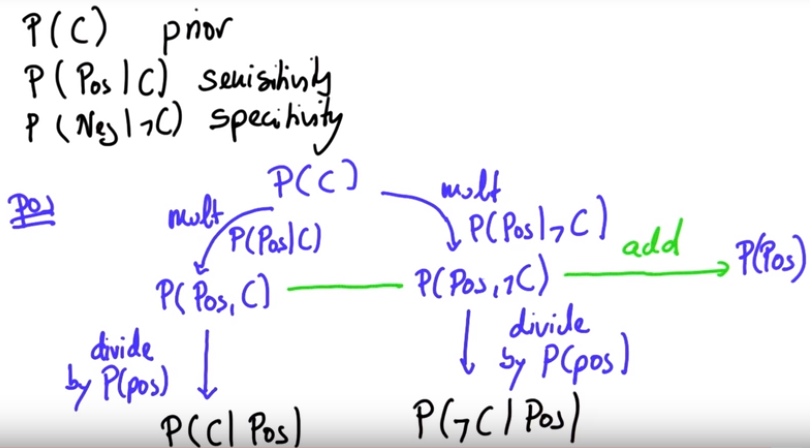 P(C) prior
P(Pos|C) sensitivity
P(Neg|¬C) specitivity
P(C)
Pos
mult
mult
P(Pos|C)
P(Pos|¬C)
add
P(Pos)
P(Pos,C)
P(Pos,¬C)
divide
by P(pos)
divide
by P(pos)
P(C|Pos)
P(¬C|Pos)